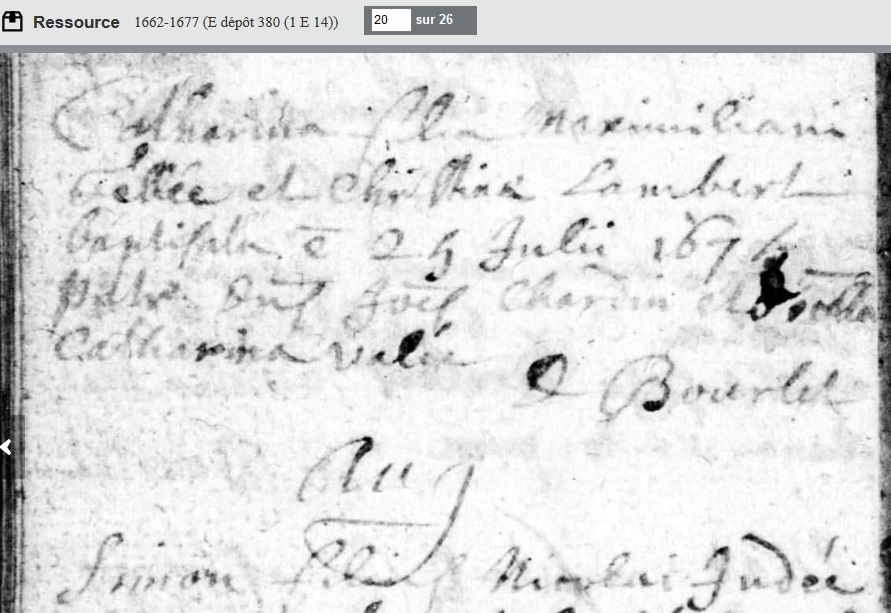 Ressource 1662-1677 (E dépôt 380 (1 E 14)) 20 sur 26
Catharina filia Maximiliani
et Christinae Lambert
baptisata ē 24 Julii 167
Joēs Chardin et
Catharina valée
Bourlet
Aug
Simon filius Nicolai Judée